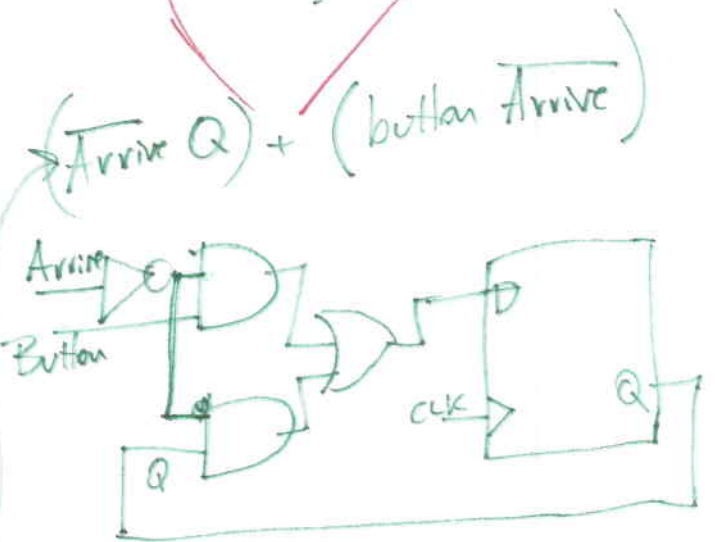 (A̅r̅r̅i̅v̅e̅ Q) + (button A̅r̅r̅i̅v̅e̅)
Arrive
D
Button
CLK
Q
Q